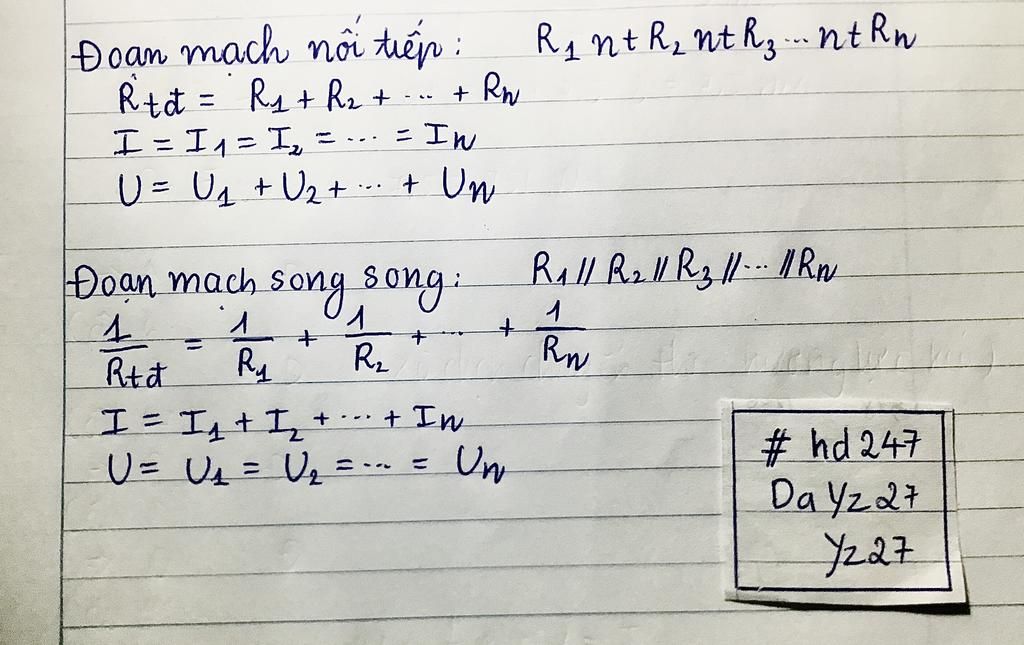 Đoạn mạch nối tiếp: R₁ nt R₂ nt R₃ ... nt Rₙ
Rtđ = R₁ + R₂ + ... + Rₙ
I = I₁ = I₂ = ... = Iₙ
U = U₁ + U₂ + ... + Uₙ
Đoạn mạch song song: R₁ // R₂ // R₃ // ... // Rₙ
1/Rtđ = 1/R₁ + 1/R₂ + ... + 1/Rₙ
I = I₁ + I₂ + ... + Iₙ
U = U₁ = U₂ = ... = Uₙ
# hd247
Da Yz27
Yz27